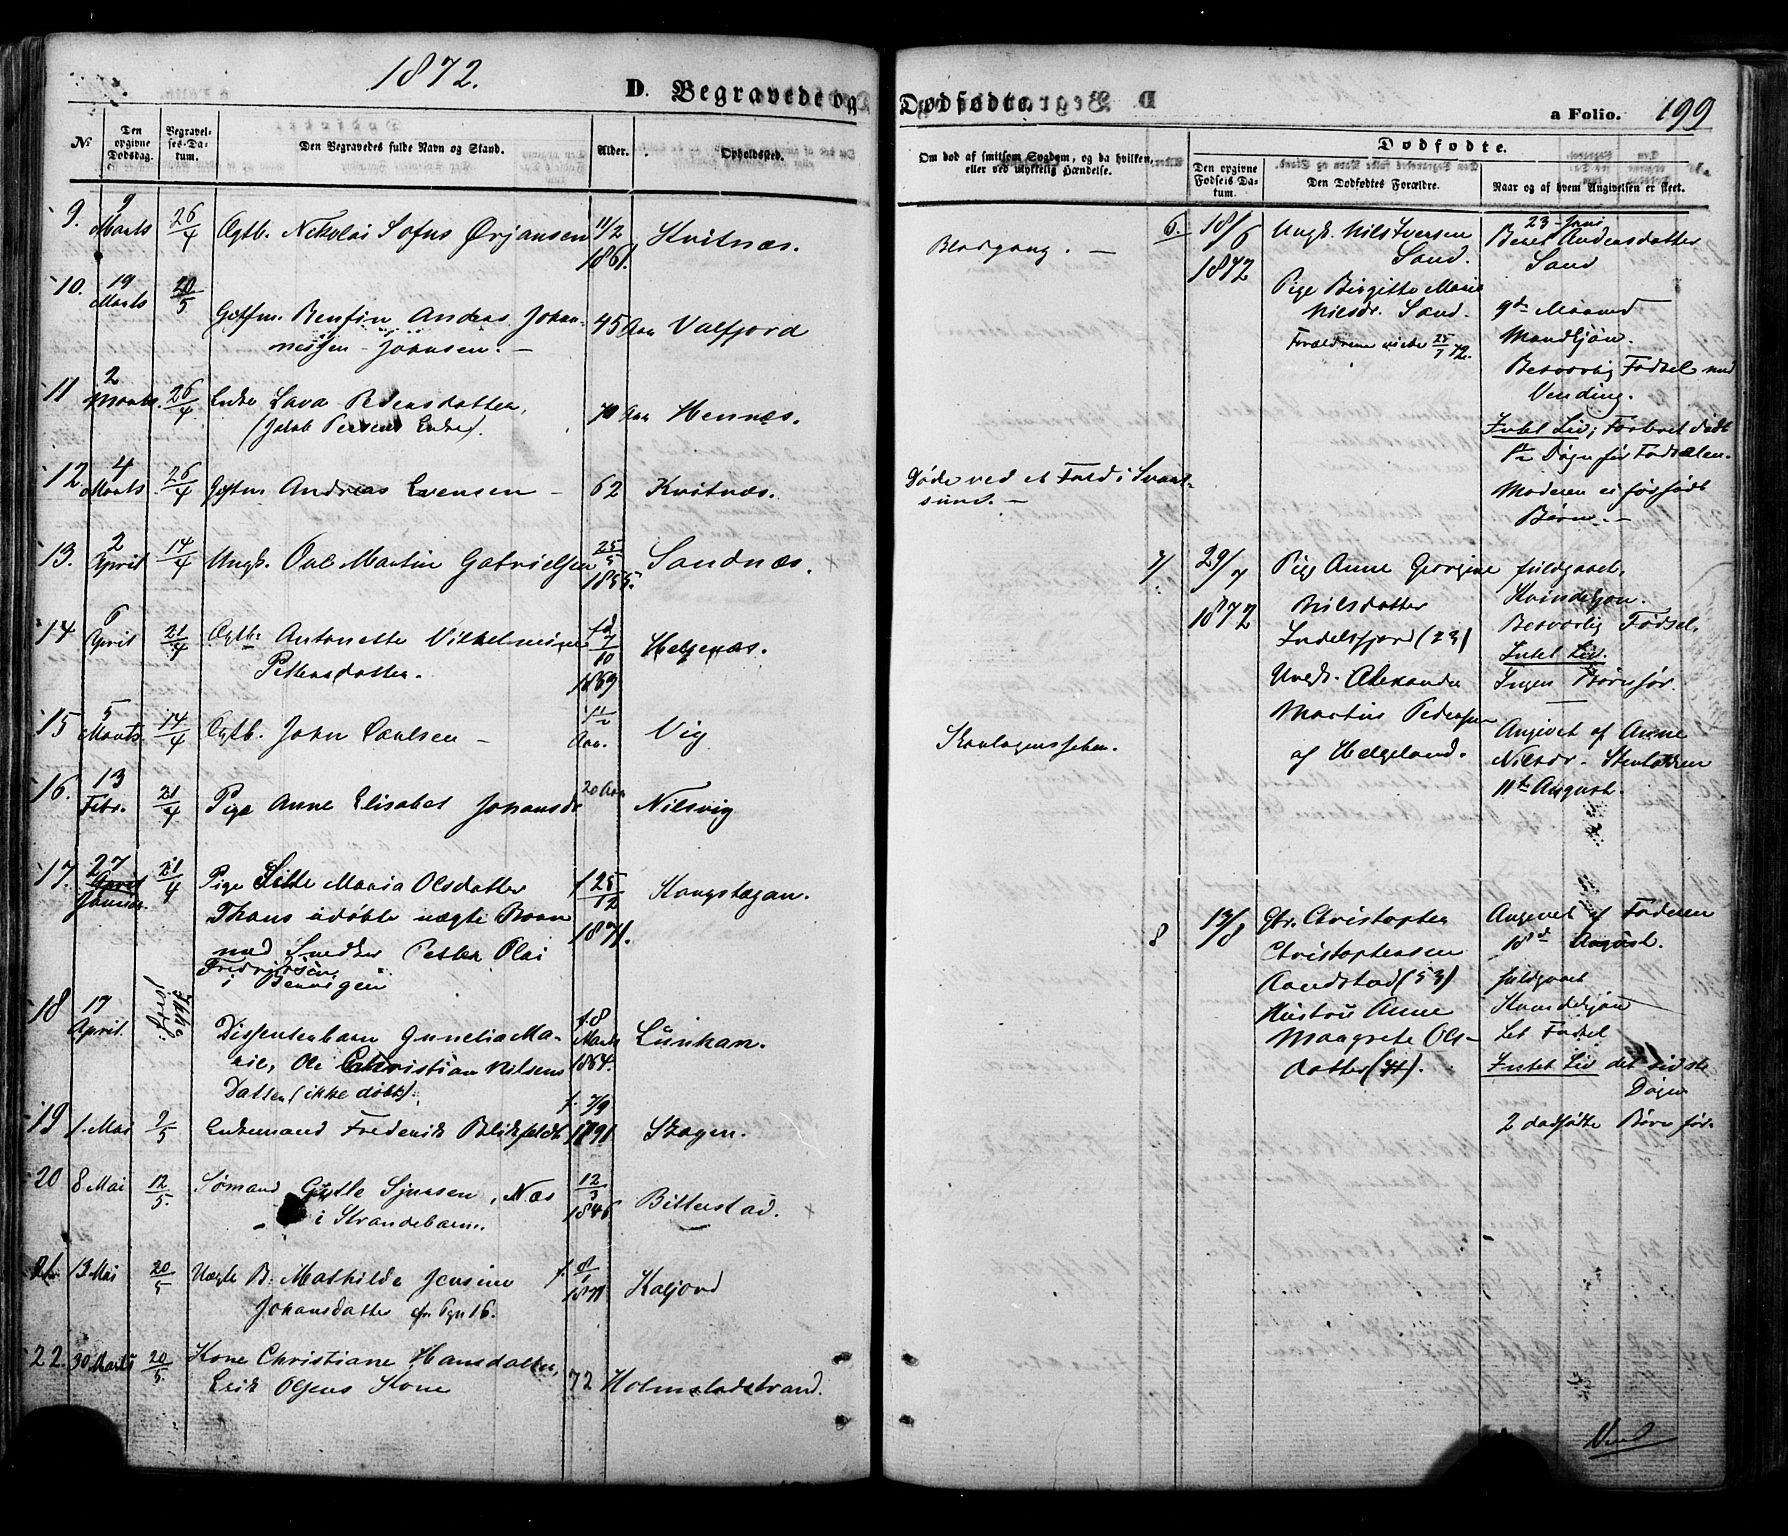 1872.
D. Begravede og Dødfødte.
a Folio. 199
No.
Den opgivne Dødsdag.
Begravelses-Datum.
Den Begravedes fulde Navn og Stand.
Alder.
Opholdssted.
Om død af smitsom Sygdom, og da hvilken, eller ved ulykkelig Hændelse.
Dødfødte.
Den opgivne Fødsels Datum.
Den Dødfødtes Forældre.
Naar og af hvem Angivelsen er skeet.
9. 9 Marts 26/4 Ægtb. Nikolai Sofus Ørjansen 11/2 1861. Kvitnæs. Blodgang. —
10. 19 Marts 20/5 Gaetfm. Andreas Johan-
nissen Johnsen. — 45 Aar Valfjord
11 2 Marts. 26/4 Enke Lava Pedersdatter, 70 Aar Hennæs.
(Jakob Enke).
12. 4 Marts 26/4 Andreas Evensen — 62 Kvitnæs. Døde ved et Fald i Svart-
sund. —
13. 2 April 14/4 Ungk. Martin Gabrielsen 25/5 1855. Sandnæs.
14 6 April 21/4 Ægtb. Antonette Vilhelmine
Pettersdatter. fd 7/10 1869 Helgenæs.
15 5 Marts 14/4 Ægtb. John Carlsen — Aar. Vig
16. 13 Febr. 21/4 Pige Anne Elisabet Johansdr 20 Aar Nilsvig
17. 27 Januar. 21/4 Pige Maria Olsdatter
udøbte uægte Barn
med Snedker Petter Olai
Fredriksen
i f. 25/12 1871.
18 17 April. Dissenterbarn Gunelia Ma-
rie, Ole Christian Nilsens
Datter (ikke døbt). f. 8 Marts 1864. Lunkan.
19 1. Mai 9/5 Enkemand Frederik Blikfeldt f. 7/9 1791 Skagen.
20 8 Mai 12/5. Sømand Sjursen, Næs
i Strandebarm. 12/3 1846 Bitterstad.
21. 13 Mai 20/5 Uægte B. Mathilde Jensine
Johansdatter Kaljord
22. 30 Marts 20/5. Kone Christiane Hansdatter,
Erik Olsens Kone 72 Holmstadstrand.
6. 18/6 1872
Ungk. Nils Iversen
Sand.
Pige Birgitte Marie
Nilsdr. Sand.
Forældrene viede 25/7 72.
23 Juni
Beret Andersdatter
Sand
9de Maaned
Mandkjøn.
Besværlig Fødsel med
Vending.
Intet Liv; Fosteret dødt
1/2 Døgn før Fødselen.
Moderen ei før født
Børn. —
7/ 29/7 1872
Pige Anne Georgine
Nilsdatter
Indelsfjord (23)
Ungk. Alexander
Martin Pedersen
af Helgeland.
fuldgaaet.
Kvindekjøn.
Besværlig Fødsel.
Intet Liv.
Ingen Børn før.
Angivet af Anne
Nilsdr. Stenbakken
11te August.
8 13/8
Gbr. Christopher
Christophersen
Randstad (53)
Hustru Anne
Margrete Ols-
datter
Angivet af Faderen
18de August.
fuldgaaet
Kvindekjøn
Let Fødsel
Intet Liv det sidste
Døgn
2 dødfødte Børn før.
Vend